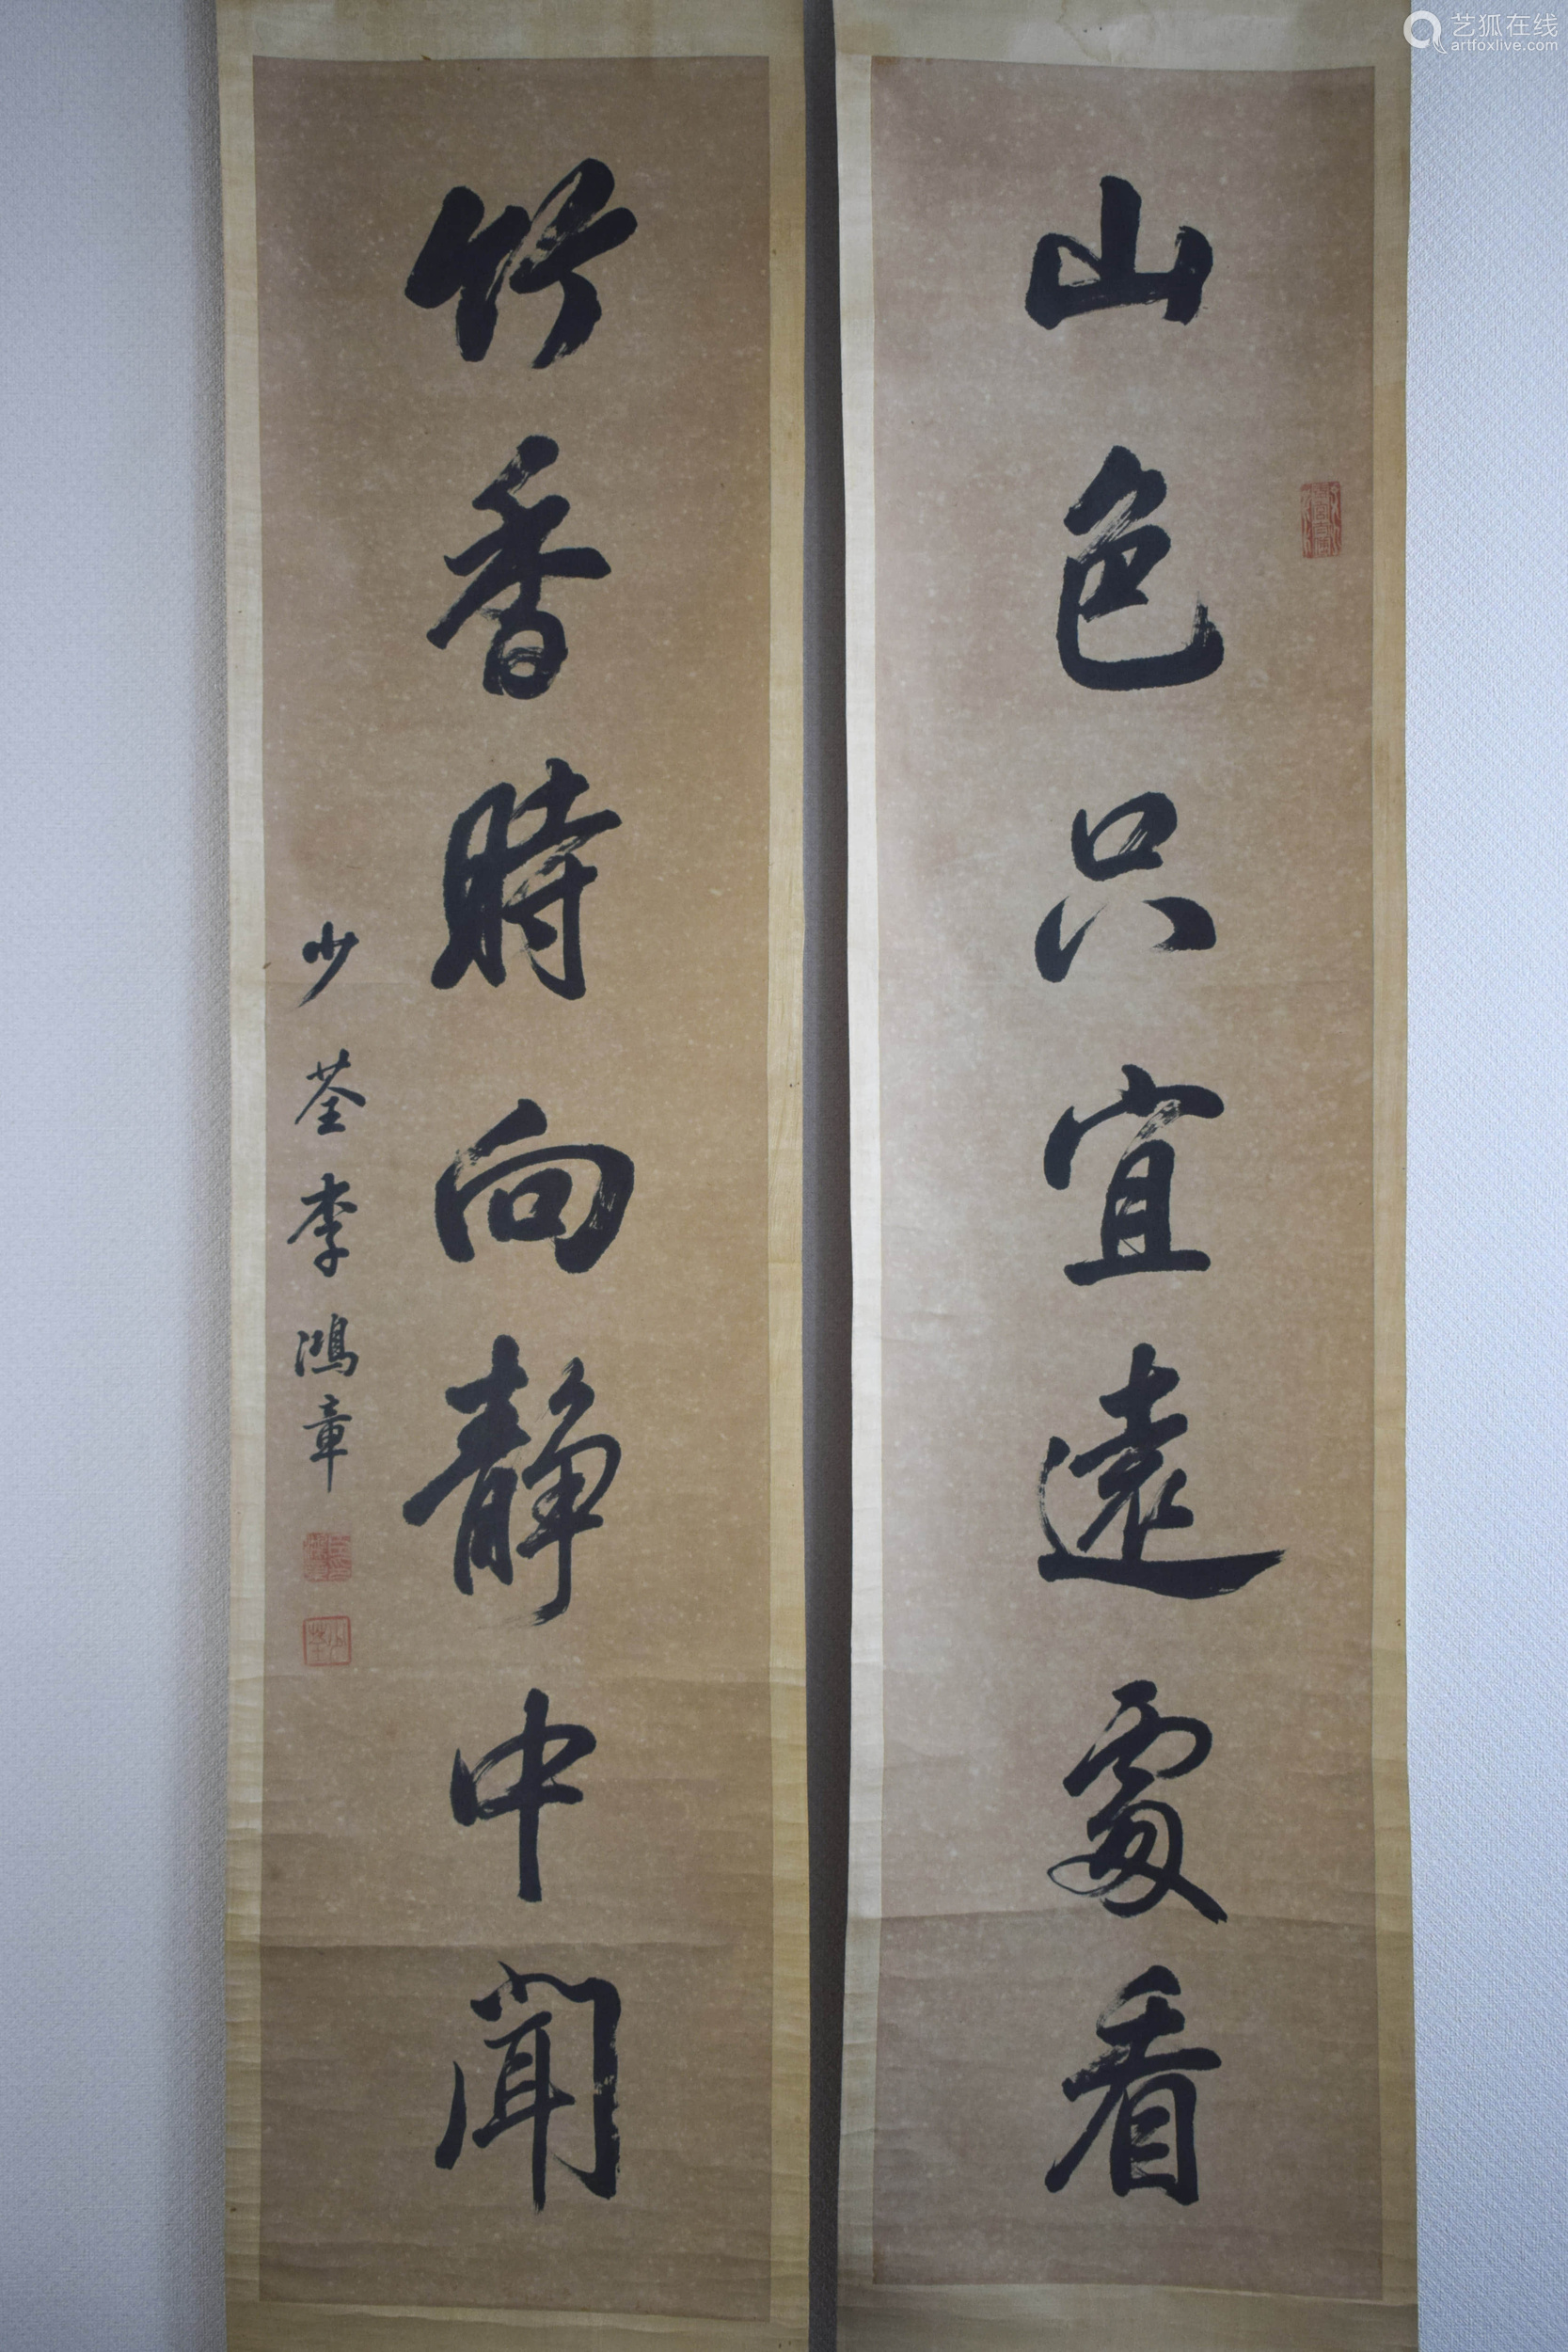 山色只宜遠處看
竹香時向靜中聞
少荃李鴻章
少荃
艺狐在线
artfoxlive.com